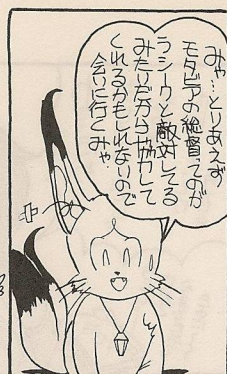 みゃ…とりあえず
モタビアの総督ってのが
ラシークと敵対してる
みたいだから協力して
くれるかもしれないので
会いに行くみゃ